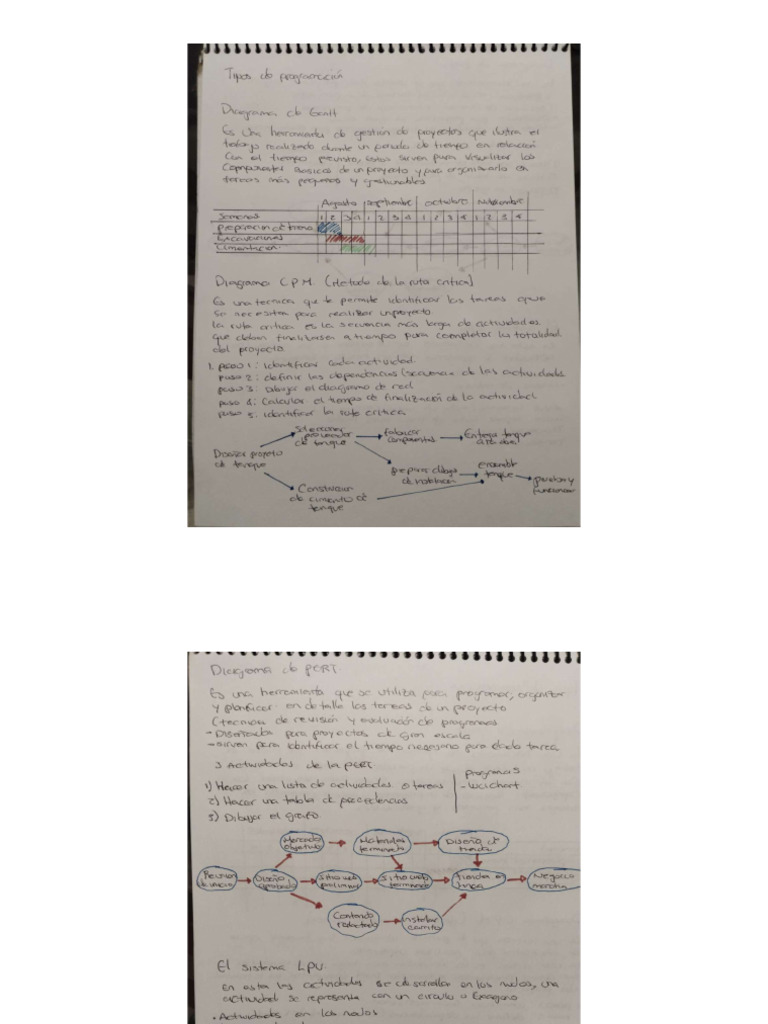 Tipos de programación
Diagrama de Gantt
Es una herramienta de gestión de proyectos que ilustra el
trabajo realizado durante un periodo de tiempo en relación
Con el tiempo previsto, estos sirven para visualizar los
Componentes básicos de un proyecto y para organizarlo en
tareas más pequeñas y gestionables
Agosto septiembre octubre Noviembre
Semanas 1 2 3 4 1 2 3 4 1 2 3 4 1 2 3 4
preparación de terreno
Excavaciones
Cimentación
Diagrama C.P.M. (Método de la ruta critica)
Es una tecnica que te permite identificar las tareas que
Se necesitan para realizar un proyecto.
la ruta critica es la secuencia más larga de actividades
que deben finalizarse a tiempo para completar la totalidad
del proyecto.
1. paso 1: identificar cada actividad
paso 2: definir las dependencias (secuencia de las actividades
paso 3: Dibujar el diagrama de red
paso 4: Calcular el tiempo de finalización de la actividad
paso 5: identificar la ruta critica
Seleccionar
proveedor
de tanque
fabricar
componentes
Entrega tanque
Diseñar proyecto
de tanque
preparar
ensamblar
tanque
Construcción
de cimiento de
tanque
Diagrama de PERT.
Es una herramienta que se utiliza para programar, organizar
y planificar en detalle las tareas de un proyecto
(tecnica de revisión y evaluación de programas
- Diseñada para proyectos de gran escala
- sirven para identificar el tiempo necesario para cada tarea
3 Actividades de la PERT.
1) Hacer una lista de actividades o tareas
2) Hacer una tabla de precedencias
3) Dibujar el grafo.
programas
- Lucichart
Mercado
objetivo
Materiales
terminado
Diseño de
tienda
Reunion
de inicio
Diseño
aprobado
Sitio web
preliminar
Sitio web
terminado
tienda en
linea
Negocio
marcha
Contenido
redactado
instalar
carrito
El sistema LPU
En esta las actividades se desarrollan en los nodos, una
actividad se representa con un circulo o Exagono
• Actividades en los nodos